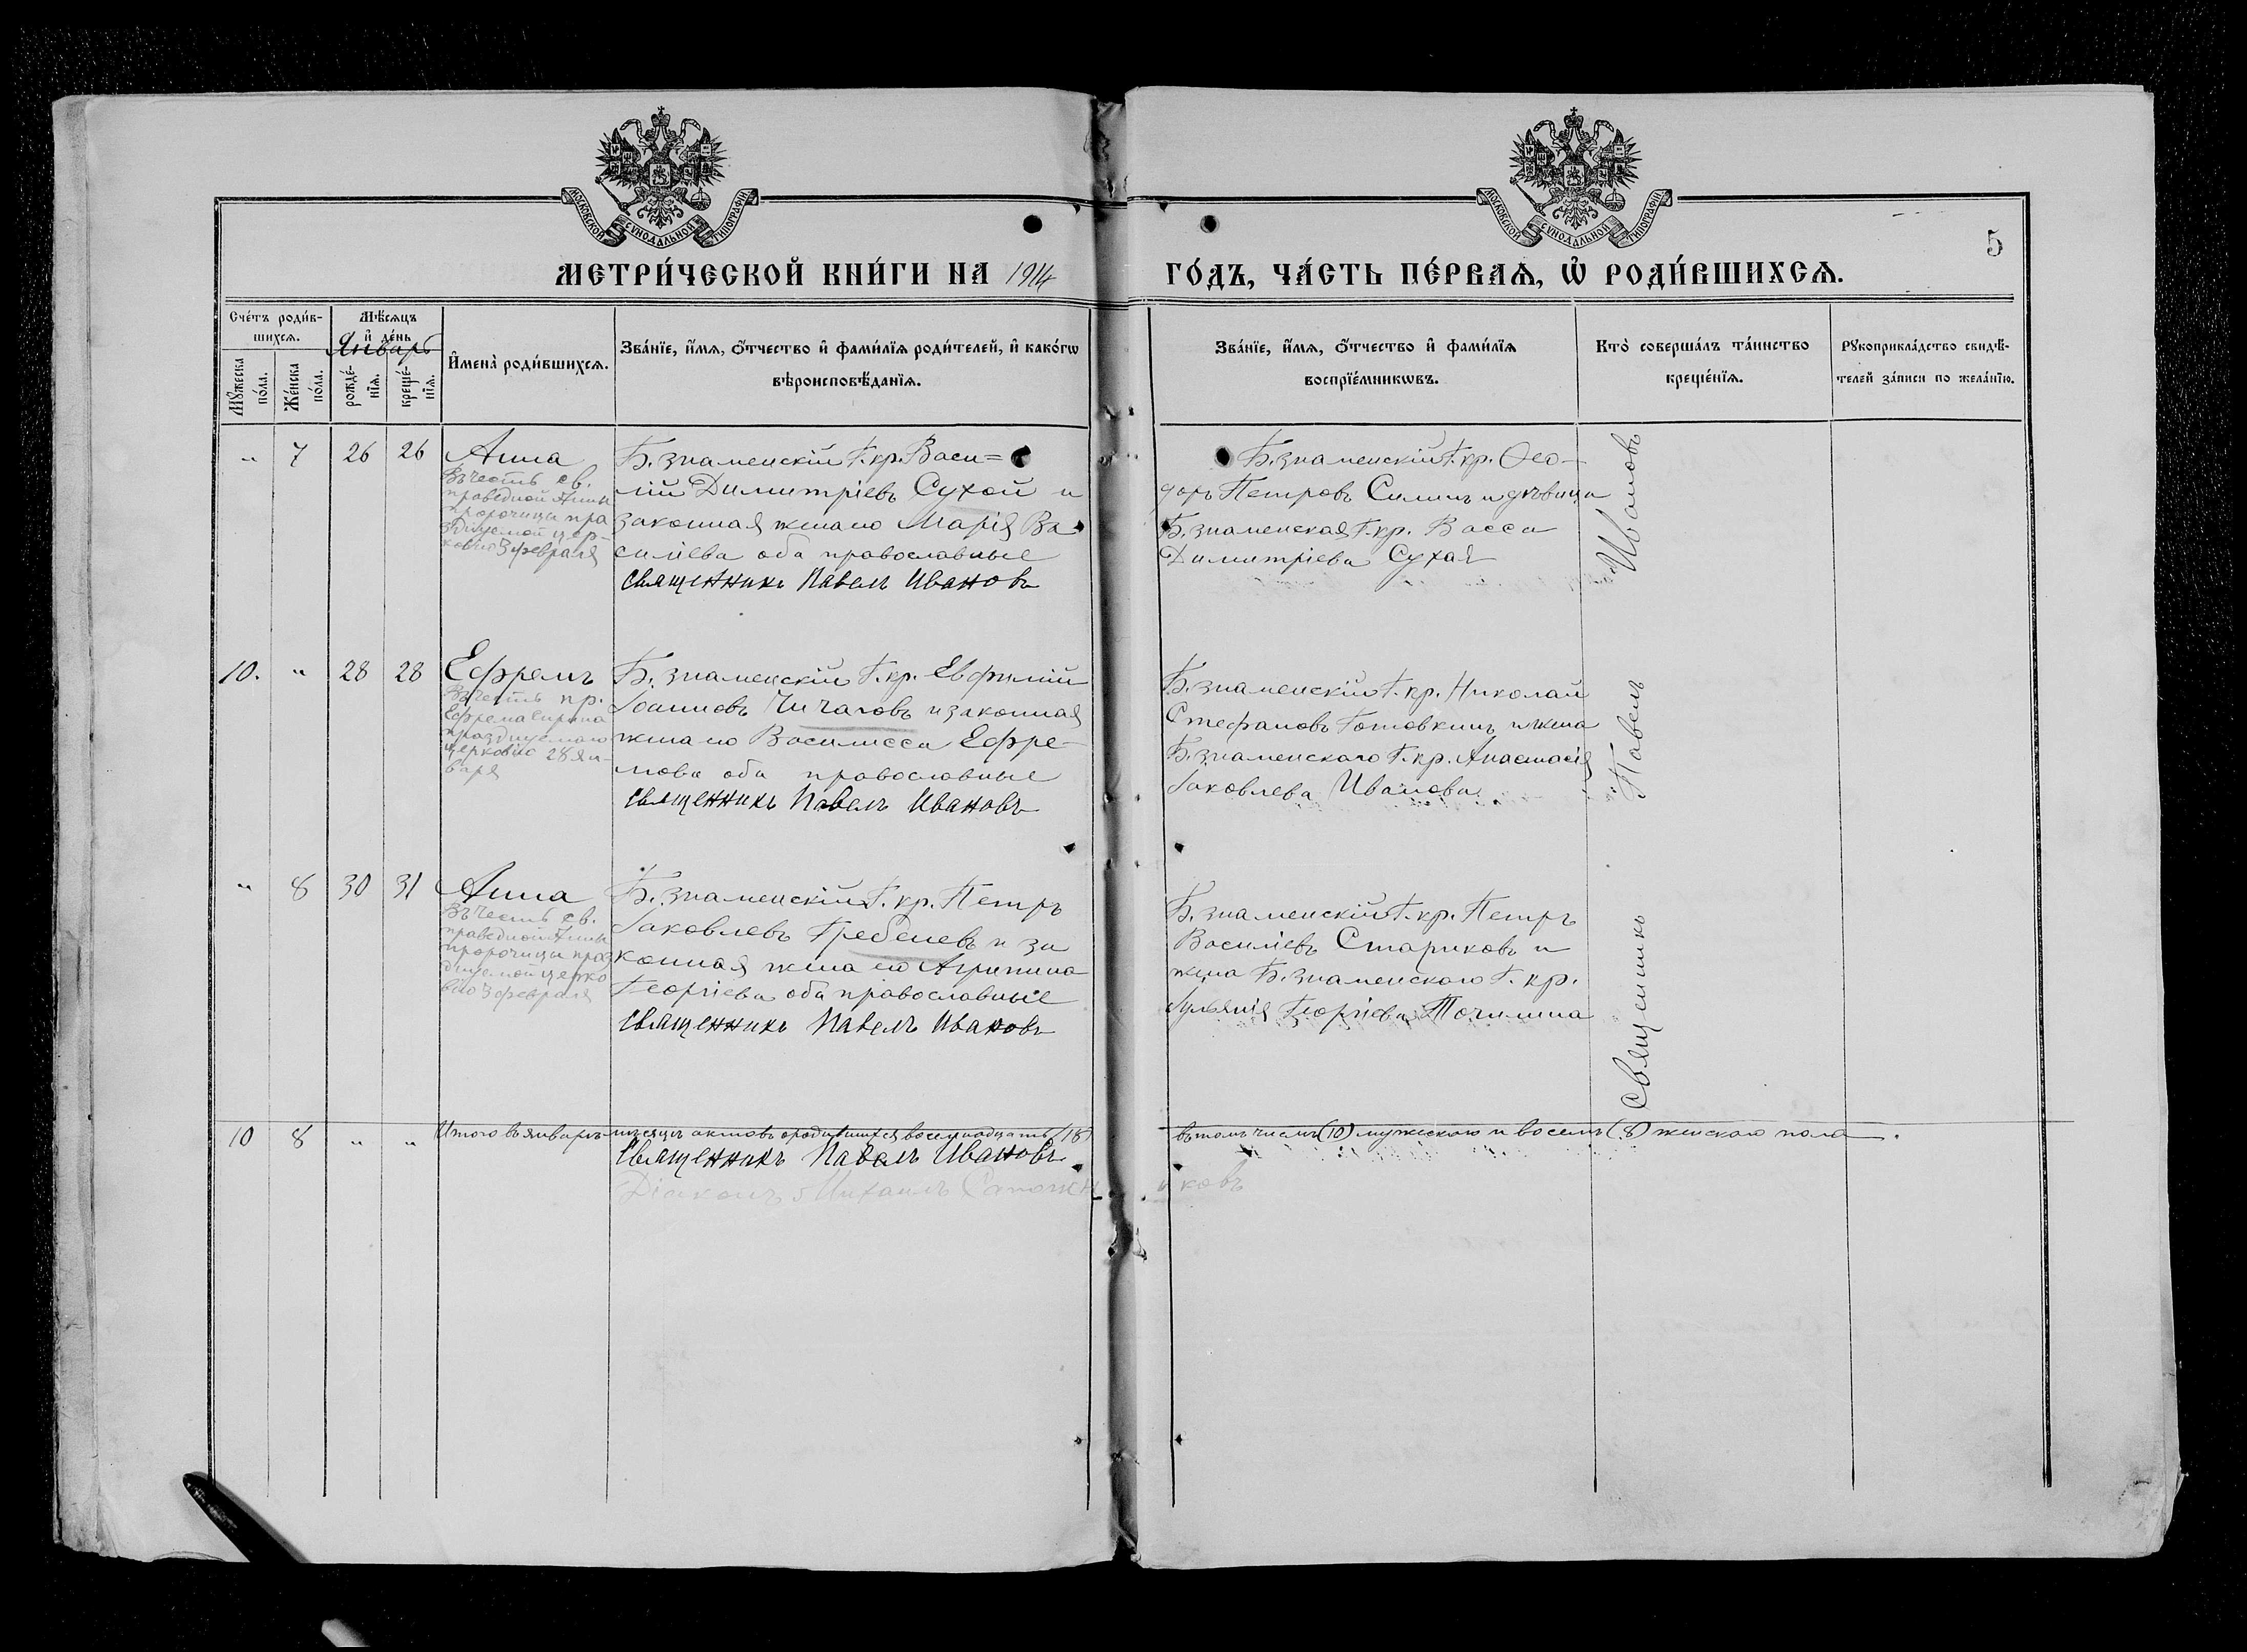 МОСКОВСКОЙ СѴНОДАЛЬНОЙ ТИПОГРАФІИ
МОСКОВСКОЙ СѴНОДАЛЬНОЙ ТИПОГРАФІИ
5
МЕТРИ́ЧЕСКОЙ КНИ́ГИ НА 1914
ГО́ДЪ, ЧА́СТЬ ПЕ́РВАѦ, Ѡ҆ РОДИ́ВШИХСѦ.
Сче́тъ роди́в-
шихсѧ.
Мꙋ́жеска по́ла.
Же́нска по́ла.
Мѣ́сѧцъ
и҆ де́нь
Январь
рожде́-нїѧ.
креще́-нїѧ.
И҆мена̀ роди́вшихсѧ.
Зва́нїе, и҆́мѧ, ѻ҆́тчество и҆ фами́лїѧ роди́телей, и҆ како́гѡ
вѣроисповѣ́данїѧ.
Зва́нїе, и҆́мѧ, ѻ҆́тчество и҆ фами́лїѧ
воспрїе́мникѡвъ.
Кто̀ соверша́лъ та́инство
креще́нїѧ.
Рꙋкоприкла́дство свидѣ́-
телей за́писи по жела́нїю.
„ 7 26 26 Анна
Въ честь св.
праведной Анны
пророчицы пра
зднуемой цер-
ковію 3 февраля
Б. знаменскій Г. кр. Васи=
лій Димитріевъ Сухой и
законная жена его Марія Ва
силіева оба православные
Священникъ Павелъ Ивановъ
Б. знаменскій Г. кр. Ѳео-
доръ Петровъ Силинъ и дѣвица
Б. знаменская Г. кр. Васса
Димитріева Сухая
10. „ 28 28 Ефремъ
Въ честь пр.
Ефрема Сирина
празднуемаго
церковію 28 ян-
варя
Б. знаменскій Г. кр. Евфимій
Іоанновъ Чичаговъ и законная
жена его Василисса Ефре-
мова оба православные
Священникъ Павелъ Ивановъ
Б. знаменскій Г. кр. Николай
Стефановъ Готовкинъ и жена
Б. знаменскаго Г. кр. Анастасія
Іаковлева Иванова
„ 8 30 31 Анна
Въ честь св.
праведной Анны
пророчицы праз
днуемой церко
вію 3 февраля
Б. знаменскій Г. кр. Петръ
Іаковлевъ Гребеневъ и за
конная жена его Агрипина
Георгіева оба православные
Священникъ Павелъ Ивановъ
Б. знаменскій Г. кр. Петръ
Василіевъ Стариковъ и
жена Б. знаменскаго Г. кр.
Іуліянія Георгіева Точилина
Священникъ Павелъ Ивановъ
10 8 „ „ Итого въ январѣ мѣсяцѣ актовъ о родившихся восемнадцать (18)
въ томъ числѣ (10) мужескаго и восемь (8) женскаго пола.
Священникъ Павелъ Ивановъ
Діаконъ Михаилъ Сапожниковъ